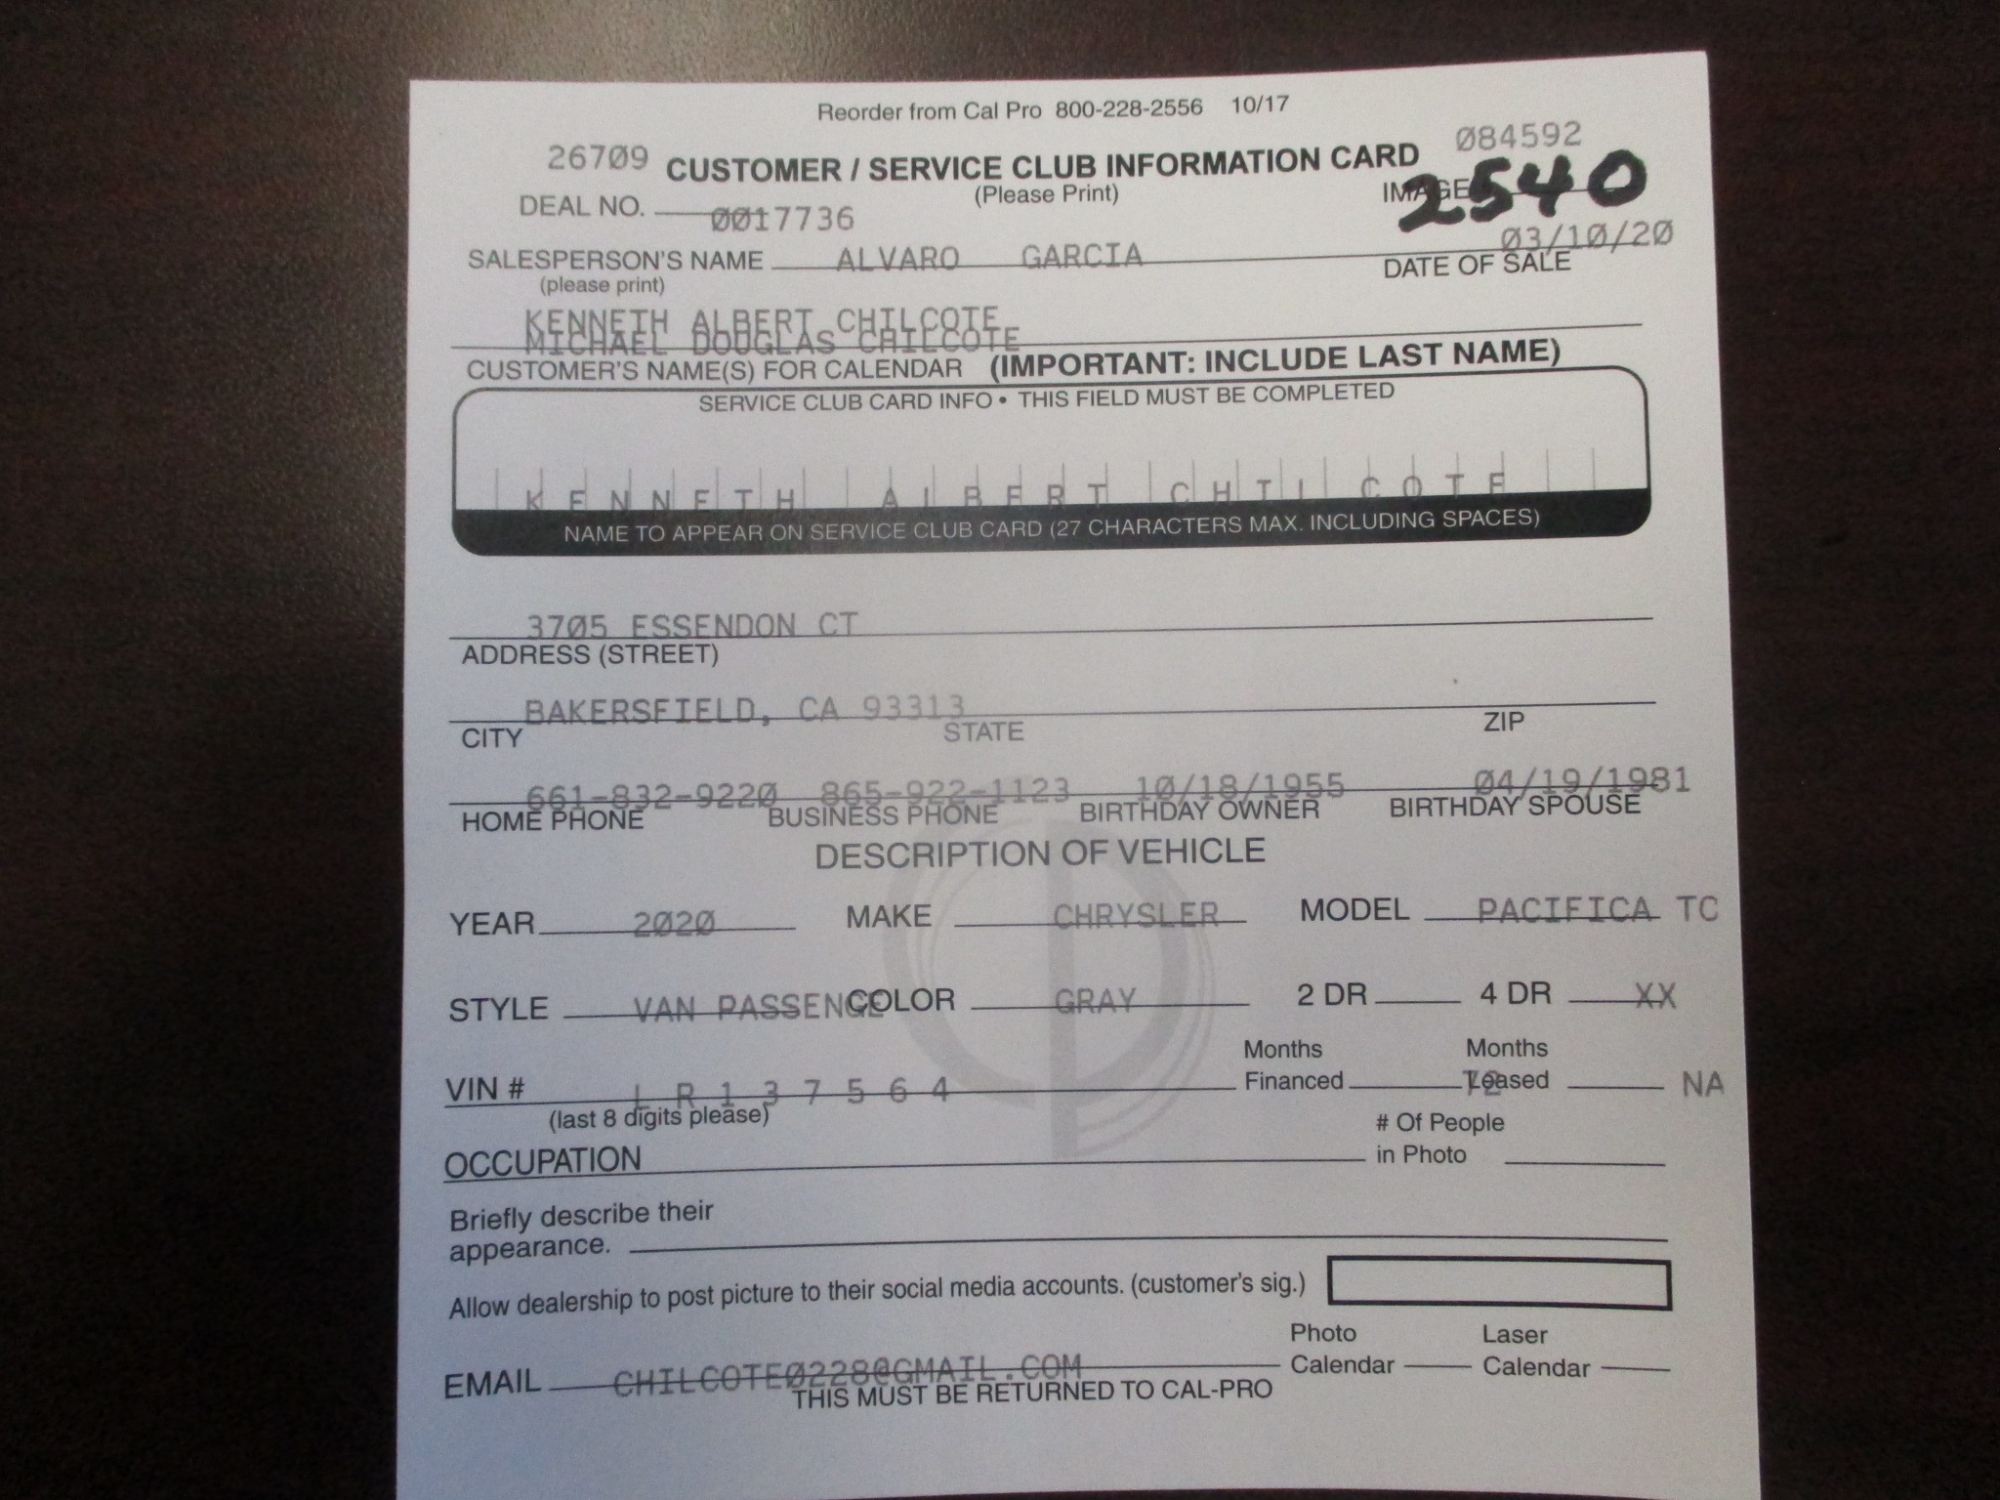 Reorder from Cal Pro 800-228-2556 10/17
26709 CUSTOMER / SERVICE CLUB INFORMATION CARD 084592
(Please Print)
IMAGE 2540
DEAL NO. 0017736
03/10/20
SALESPERSON'S NAME ALVARO GARCIA DATE OF SALE
(please print)
KENNETH ALBERT CHILCOTE
MICHAEL DOUGLAS CHILCOTE
CUSTOMER'S NAME(S) FOR CALENDAR (IMPORTANT: INCLUDE LAST NAME)
SERVICE CLUB CARD INFO • THIS FIELD MUST BE COMPLETED
KENNETH ALBERT CHILCOTE
NAME TO APPEAR ON SERVICE CLUB CARD (27 CHARACTERS MAX. INCLUDING SPACES)
3705 ESSENDON CT
ADDRESS (STREET)
BAKERSFIELD, CA 93313
CITY STATE ZIP
661-832-9220 865-922-1123 10/18/1955 04/19/1981
HOME PHONE BUSINESS PHONE BIRTHDAY OWNER BIRTHDAY SPOUSE
DESCRIPTION OF VEHICLE
YEAR 2020 MAKE CHRYSLER MODEL PACIFICA TC
STYLE VAN PASSENGE COLOR GRAY 2 DR 4 DR XX
VIN # LR137564 Months Financed 72 Months Leased NA
(last 8 digits please)
OCCUPATION # Of People in Photo
Briefly describe their
appearance.
Allow dealership to post picture to their social media accounts. (customer's sig.)
Photo Laser
EMAIL CHILCOTE0228@GMAIL.COM Calendar Calendar
THIS MUST BE RETURNED TO CAL-PRO